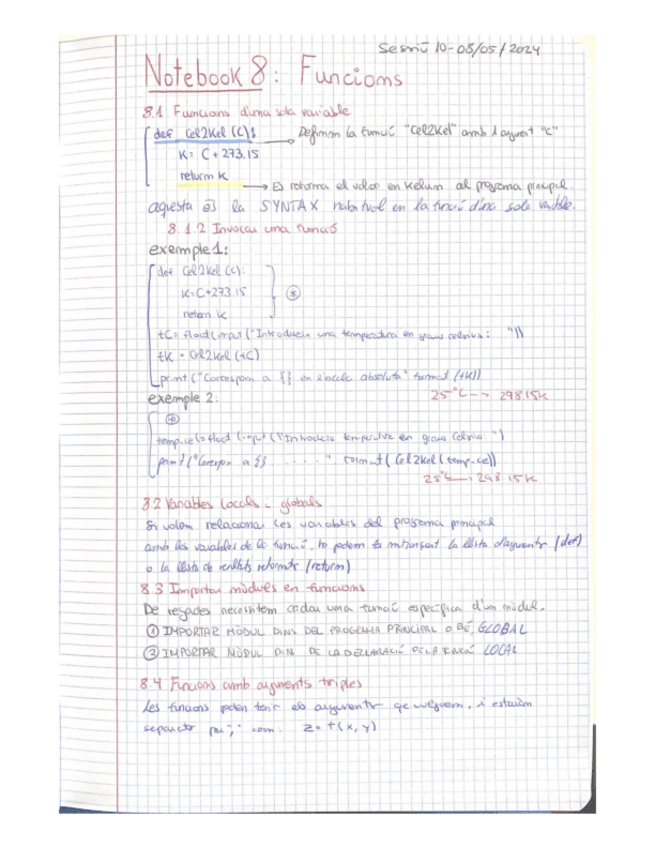 Sessió 10-08/05/2024
Notebook 8: Funcions
8.1 Funcions d'una sola variable
def Cel2Kel (C): → Definim la funció "Cel2Kel" amb 1 argument "C"
K = C + 273.15
return K
→ Es retorna el valor en Kelvin al programa principal
aquesta és la SYNTAX habitual en la funció d'una sola variable.
8.1.2 Invocar una funció
exemple 1:
def Cel2Kel (C):
K = C+273.15 *
return K
tC = float(input("Introdueix una temperatura en graus celsius: "))
tK = Cel2Kel (tC)
print ("Correspon a {} en l'escala absoluta" format (tK))
25°C --> 298.15K
exemple 2:
*
temp_cel = float (input ("Introdueix temperatura en graus Celsius ")
print ("Correspon a {} ..... " format (Cel2Kel (temp_ce))
25°C → 298.15K
8.2 Variables locals i globals
Si volem relacionar les variables del programa principal
amb les variables de la funció, ho podem fer mitjançant la llista d'arguments (def)
o la llista de resultats retornats (return)
8.3 Importar mòduls en funcions
De vegades necessitem cridar una funció específica d'un mòdul.
① IMPORTAR MÒDUL DINS DEL PROGRAMA PRINCIPAL O BÉ, GLOBAL
② IMPORTAR MÒDUL DINS DE LA DECLARACIÓ DE LA FUNCIÓ LOCAL
8.4 Funcions amb arguments
Les funcions poden tenir els arguments que vulguem, i estaran
separats per "," com: z = f(x, y)